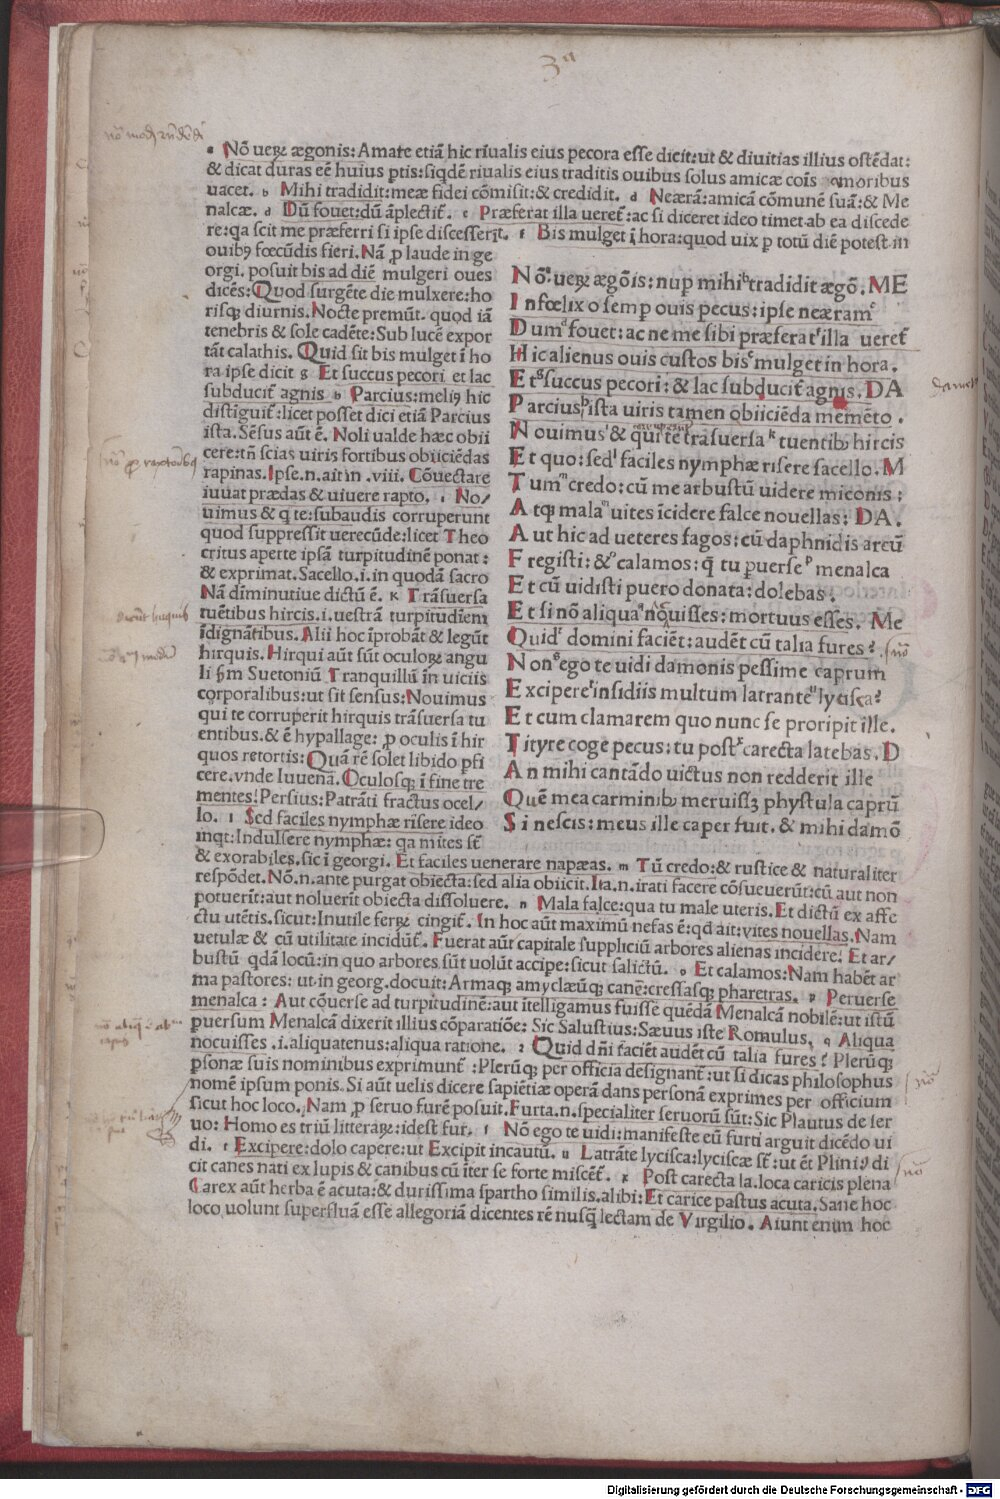 3
ª Nō ueꝝ ægonis: Amare etiā hic riualis eius pecora esse dicit: ut & diuitias illius ostēdat:
& dicat duras eē huius ꝑtis: siqdē riualis eius traditis ouibus solus amicæ coīs amoribus
uacet. b Mihi tradidit: meæ fidei cōmisit: & credidit. d Neærā: amicā cōmunē suā: & Me
nalcæ. d Dū fouet: dū āplectit̄. e Præferat illa ueret̄: ac si diceret ideo timet ab ea discede
re: qa scit me præferri si ipse discesserit. f Bis mulget ī hora: quod uix ꝑ totū diē potest in
ouibꝫ fœcūdis fieri. Nā ꝑ laude in ge
orgi. posuit bis ad diē mulgeri oues
dicēs: Quod surgēte die mulxere: ho
risqꝫ diurnis. Nocte premūt. quod iā
tenebris & sole cadēte: Sub lucē expor
tāt calathis. Quid sit bis mulget ī ho
ra ipse dicit g Et succus pecori et lac
subducit̄ agnis h Parcius: meliꝰ hic
distīguit̄: licet posset dici etiā Parcius
ista. Sēsus aūt ē. Noli ualde hæc obii
cere: tn̄ scias uiris fortibus obiiciēdas
rapinas. Ipse.n. ait in .viii. Cōuectare
iuuat prædas & uiuere rapto. i No/
uimus & q te: subaudis corruperunt
quod suppressit uerecūde: licet Theo
critus aperte ipsā turpitudinē ponat:
& exprimat. Sacello .i. in quodā sacro
Nā diminutiue dictū ē. K Trāsuersa
tuētibus hircis .i. uestrā turpitudiem
īdignātibus. Alii hoc īprobāt & legūt
hirquis. Hirqui aūt sūt oculoꝝ angu
li ẜm Suetoniū Tranquillū in uiciis
corporalibus: ut sit sensus: Nouimus
qui te corruperit hirquis trāsuersa tu
entibus. & ē hypallage: ꝓ oculis ī hir
quos retortis: Quā rē solet libido ꝑfi
cere. vnde Iuuenā. Oculosqꝫ ī fine tre
mentes! Persius: Patrāti fractus ocel/
lo. l Sed faciles nymphæ risere ideo
inqt: Indulsere nymphæ: qa mites st̄
Nō ª ueꝝ ægōis: nuꝑ mihi b tradidit ægō. ME
Infœlix o semꝑ ouis pecus: ipse neæram c
Dum d fouet: ac ne me sibi præferat e illa ueret̄
Hic alienus ouis custos bis f mulget in hora.
Et g succus pecori: & lac subducit̄ agnis. DA
Parcius h ista uiris tamen obiiciēda memēto.
Nouimus i & qui te trāsuersa k tuentibꝫ hircis
Et quo: sed l faciles nymphæ risere sacello. M
Tum m credo: cū me arbustū uidere miconis:
Atqꝫ mala n uites īcidere falce nouellas: DA.
Aut hic ad ueteres fagos: cū daphnidis arcū
Fregisti: & o calamos: q̄ tu ꝑuerse p menalca
Et cū uidisti puero donata: dolebas:
Et si nō aliqua q nocuisses: mortuus esses. Me
Quid r domini faciēt: audēt cū talia fures?
Non s ego te uidi damonis pessime caprum
Excipere t insidiis multum latrante u lycisca?
Et cum clamarem quo nunc se proripit ille.
Tityre coge pecus: tu post x carecta latebas. D
An mihi cantādo uictus non redderit ille
Quē mea carminibꝫ meruissꝫ phystula caprū
Si nescis: meus ille caper fuit. & mihi damō
& exorabiles. sic ī georgi. Et faciles uenerare napæas. m Tū credo: & rustice & naturaliter
respōdet. Nō .n. ante purgat obiecta: sed alia obiicit. Ita .n. irati facere cōsueuerūt: cū aut non
potuerīt: aut noluerīt obiecta dissoluere. n Mala falce: qua tu male uteris. Et dictū ex affe
ctu utētis. sicut: Inutile feꝝ cingit̄. In hoc aūt maximū nefas ē: qd ait: vites nouellas. Nam
uetulæ & cū utilitate incidūt̄. Fuerat aūt capitale suppliciū arbores alienas incidere! Et ar/
bustū qdā locū: in quo arbores sūt uolūt accipe: sicut salictū. o Et calamos: Nam habēt ar
ma pastores: ut in georg. docuit: Armaqꝫ amyclæūqꝫ canē: cressasqꝫ pharetras. p Peruerse
menalca: Aut cōuerse ad turpitudinē: aut ītelligamus fuisse quēdā Menalcā nobilē: ut istū
ꝑuersum Menalcā dixerit illius cōparatiōe: Sic Salustius: Sæuus iste Romulus. q Aliqua
nocuisses .i. aliquatenus: aliqua ratione. r Quid dn̄i faciēt audēt cū talia fures? Plerūqꝫ
ꝑsonæ suis nominibus exprimunt̄: Plerūqꝫ per officia designant̄: ut si dicas philosophus
nomē ipsum ponis. Si aūt uelis dicere sapiētiæ operā dans personā exprimes per officium
sicut hoc loco. Nam ꝓ seruo furē posuit. Furta .n. specialiter seruorū sūt: Sic Plautus de ser
uo: Homo es triū litteraꝝ: idest fur. s Nō ego te uidi: manifeste eū furti arguit dicēdo ui
di. t Excipere: dolo capere: ut Excipit incautū. u Latrāte lycisca: lyciscæ st̄: ut ēt Pliniꝰ di
cit canes nati ex lupis & canibus cū īter se forte miscēt̄. x Post carecta la. loca caricis plena
Carex aūt herba ē acuta: & durissima spartho similis. alibi: Et carice pastus acuta. Sane hoc
loco uolunt superfluā esse allegoriā dicentes rē nusq̄ lectam de Virgilio. Aiunt enim hoc
Digitalisierung gefördert durch die Deutsche Forschungsgemeinschaft - DFG